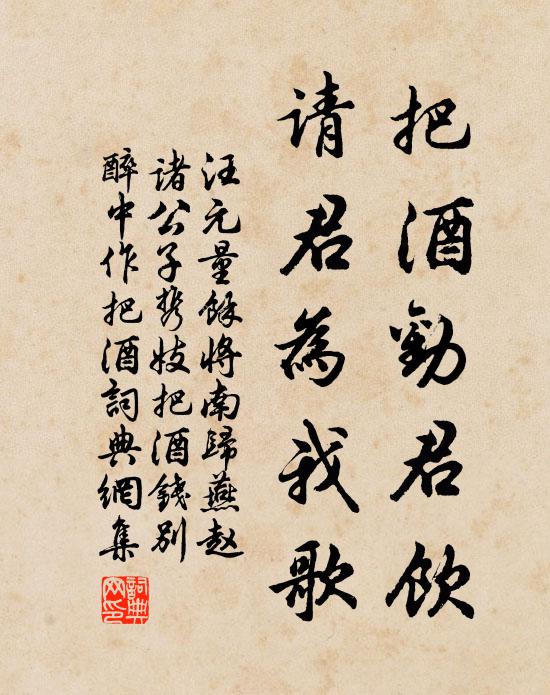 把酒勸君飲
请君為我歌
汪元量餘将南歸燕赵
诸公子携妓把酒餞别
醉中作把酒詞典網集
詞典
网印